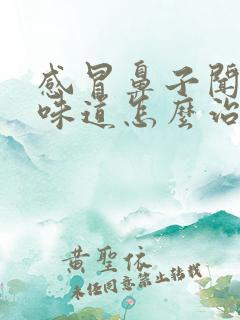 感冒鼻子聞
味道怎麼治
黃聖依
未任同意禁止转载